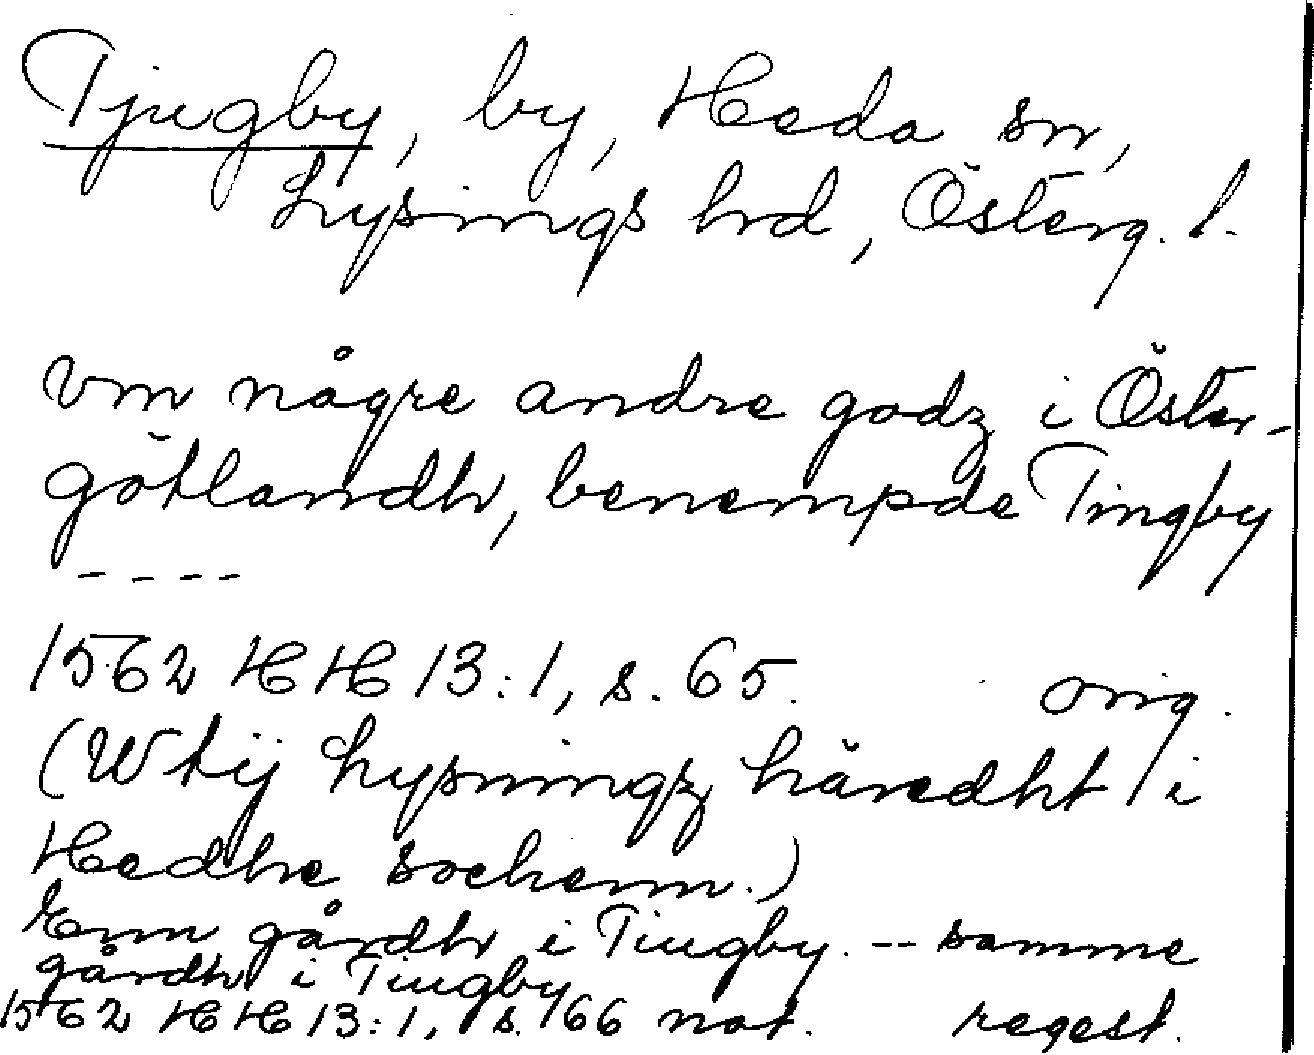 Tjugby, by, Heda sn,
Lysings hrd, Österg. l.
Vm någre andre godz i Öster-
götlandh, benempde Tingby
- - - -
1562 HH 13:1, s. 65. orig.
(Wtij Lysningz häredht / i
Hedhe sochenn.)
Enn gårdh i Tiugby. -- samme
gårdh i Tiugby
1562 HH 13:1, s. 166 not. regest.